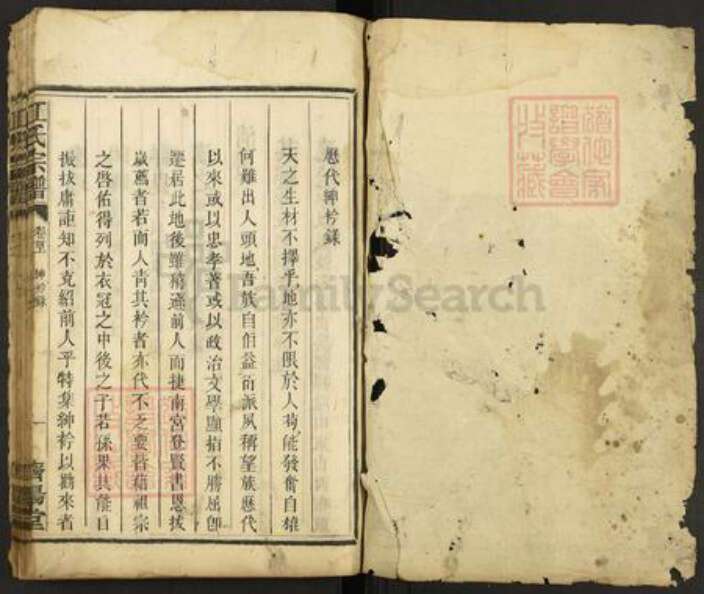 歷代紳衿錄
天之生材不擇乎地亦不限於人苟能發奮自雄
何難出人頭地吾族自伯益衍派夙稱望族歷代
以來或以忠孝著或以政治文學顯指不勝屈卽
遷居此地後雖稍遜前人而捷南宮登賢書恩拔
歲薦者若而人靑其衿者亦代不乏要皆藉祖宗
之啓佑得列於衣冠之中後之子若孫果其能自
振拔庸詎知不克紹前人乎特彙紳衿以勸來者
江氏宗譜
紳衿錄
一
濟陽堂
FamilySearch